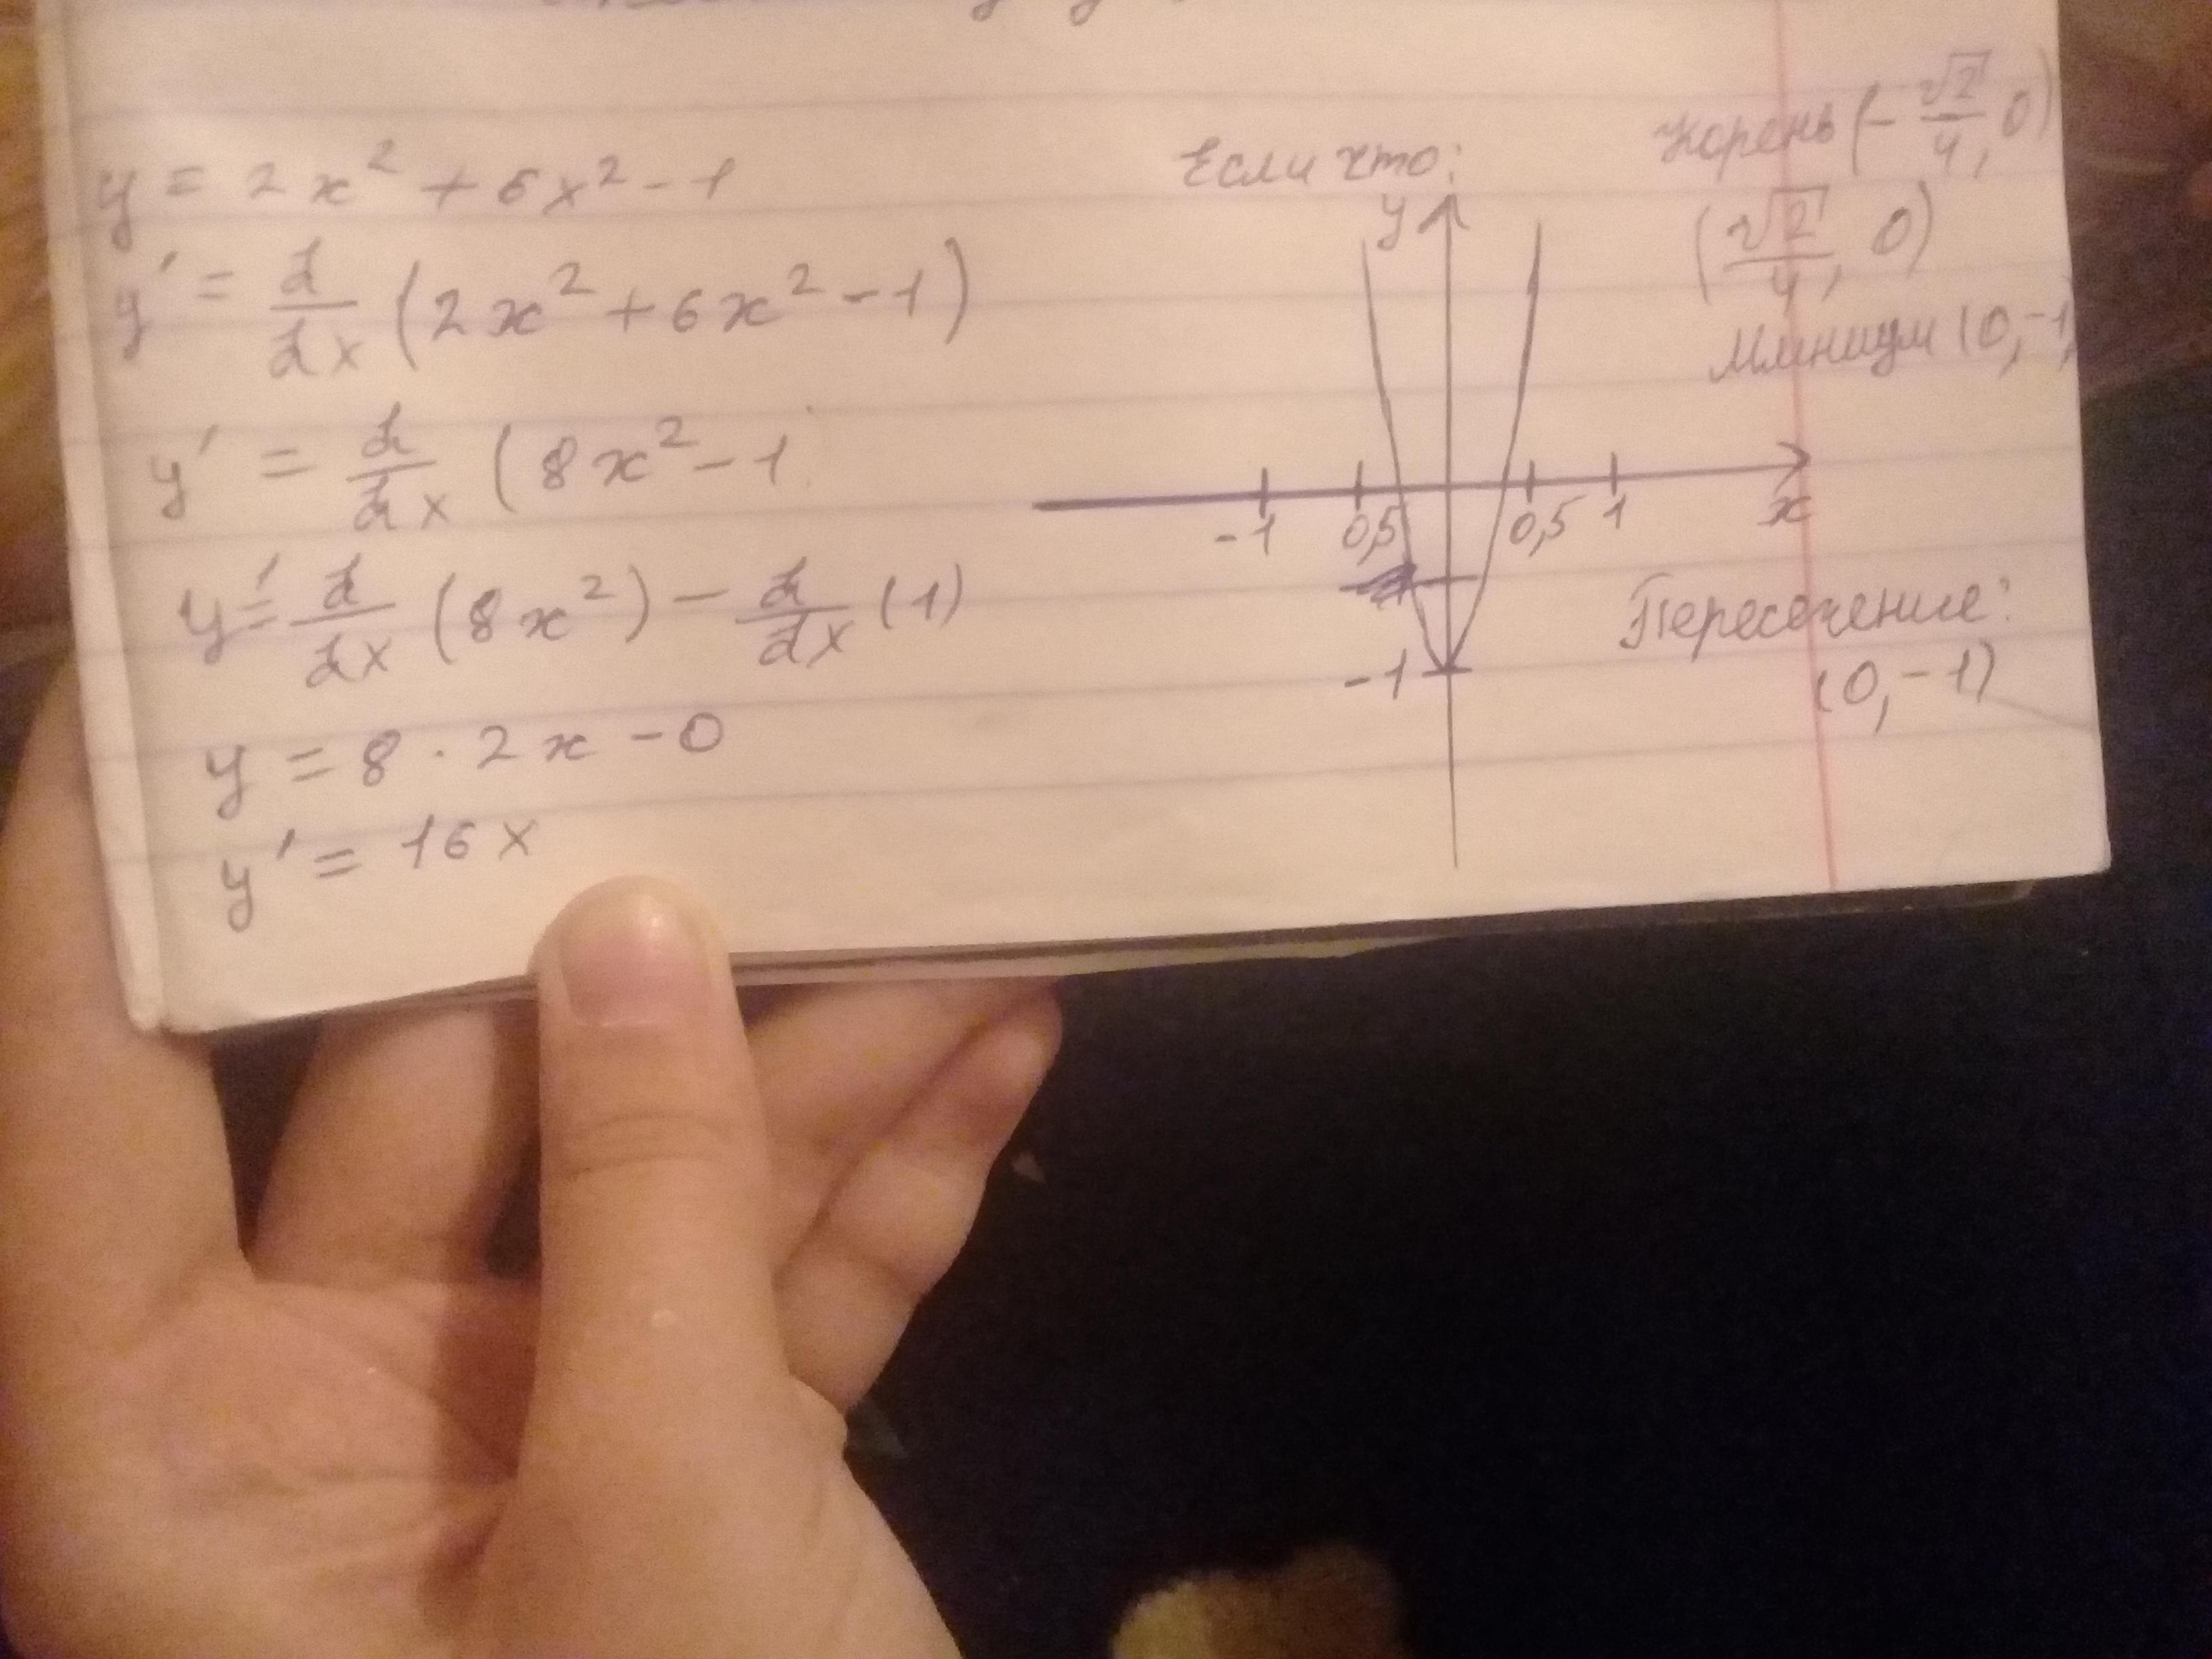 y = 2x² + 6x² - 1
y' = d/dx (2x² + 6x² - 1)
y' = d/dx (8x² - 1
y' = d/dx (8x²) - d/dx (1)
y = 8 · 2x - 0
y' = 16x
Если что:
y
-1 0,5 0,5 1 x
-1
Корень (-√2/4, 0)
(√2/4, 0)
Минимум (0, -1)
Пересечение:
(0, -1)